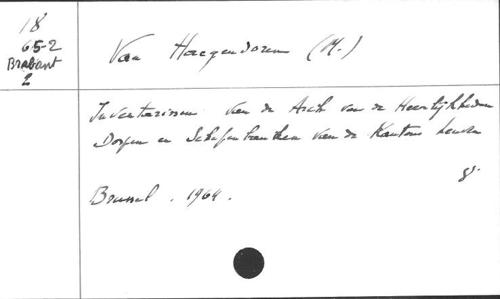 18
65-2
Brabant
2
Van Haegendoren (M.)
Inventarissen van de Arch van de Heerlijkheden
Dorpen en Schepenbanken van de Kanton Leuven
8°.
Brussel. 1964.